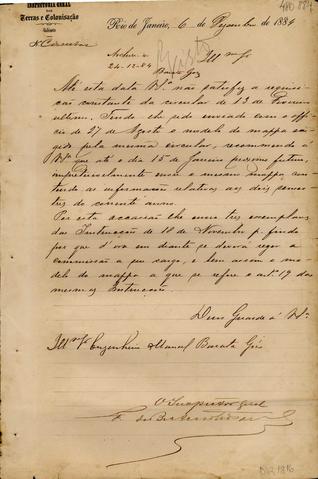 INSPECTORIA GERAL
DAS
Terras e Colonisação
Rio de Janeiro, 6 de Dezembro de 1884
N. Circular
Archive-se
24-12-84
Visto
Illmo Sr
Até esta data V.S. não satisfez a requisi-
ção constante da circular de 13 de Fevereiro
ultimo. Tendo lhe sido enviado com o offi-
cio de 27 de Agosto o modelo do mappa exi-
gido pela mesma circular, recommendo á
V.S. que até o dia 15 de Janeiro proximo futuro,
impreterivelmente envie o mesmo mappa, con-
tendo as informações relativas aos dois semes-
tres do corrente anno.
Por esta occasião lhe envio tres exemplares
das Instrucções de 18 de Novembro p. findo
por que d'ora em diante se deverá reger a
commissão a seu cargo, e bem assim o mo-
delo do mappa a que se refere o art. 19 das
mesmas Instrucções.
Deus Guarde á V.S.
Illmo Sr Engenheiro Manoel Barata Góis
O Inspector Geral
F. de